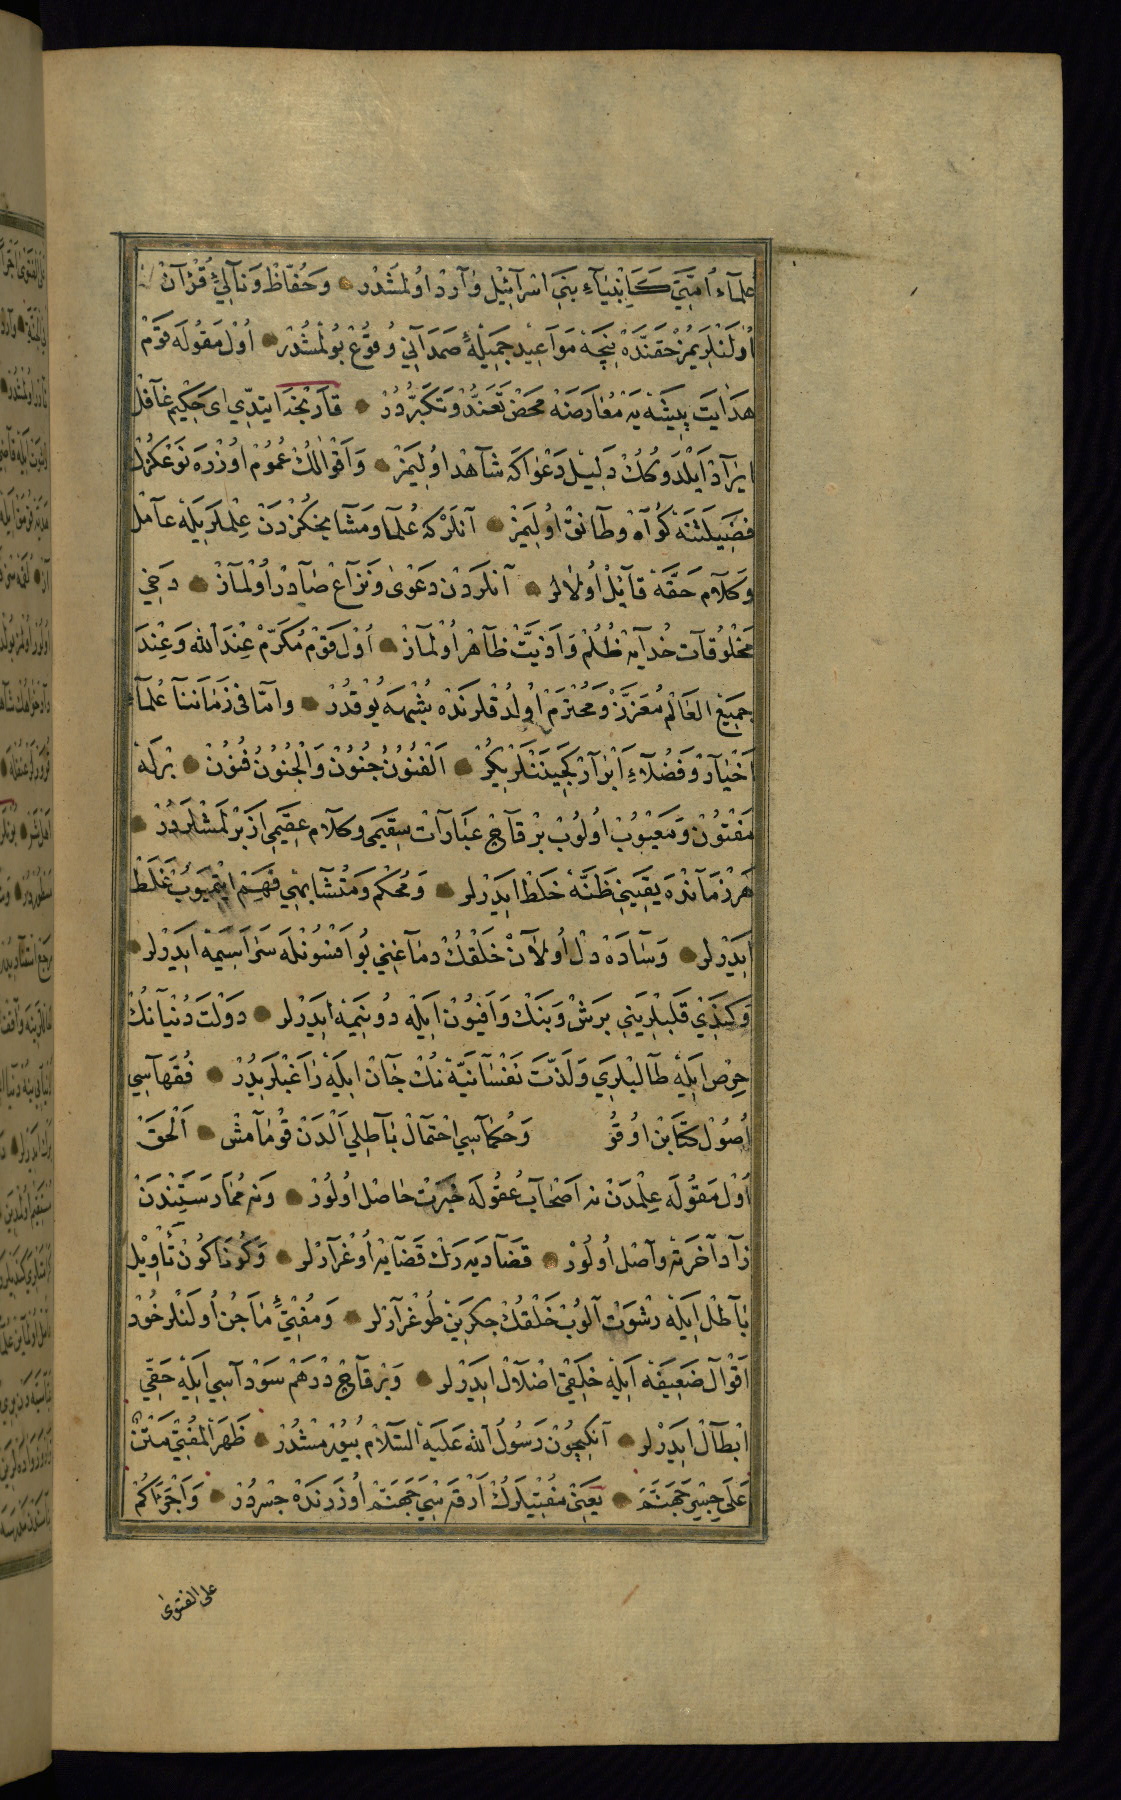 عُلَمَاءُ اُمَّتِي كَاَنْبِيَآءِ بَنِي اِسْرَآئِيْل وَارِدْ اُولْمُشْدُرْ وَحُفَّاظْ وَتَالِئُ قُرْآنْ
اُولَنْلَرِيمُزْ حَقَّنْدَهْ نِيچَهْ مَوَاعِيدِ جَمِيلَهٔ صَمَدَانِي وُقُوعْ بُولْمُشْدُرْ اُولْ مَقُولَه قَوْمْ
هِدَايَتْ پِيشَهْ يَهْ مُعَارَضَهْ مَحْضِ تَعَنُّدْ وَتَكَبُّرْدُرْ قَارِنْجَه اَيتدِي اى حَكِيمِ غَافِلْ
ايرَادْ اَيْلَدُوكُكْ دَلِيلْ دَعْوَاكَه شَاهِدْ اُولِيمَزْ وَاَقْوَالُكْ عُمُومْ اُوزْرَه نَوْعِكُزْكْ
فَضِيلَتْنَه كُوَاهْ وطَانِقْ اُولِيمَزْ آنْلَرْ كه عُلَمَا ومَشَايِخِكُزْدَنْ عِلْمْلَرِيلَه عَامِلْ
وَكَلَامِ حَقَّه قَائِلْ اُولَالَرْ آنْلَرْدَنْ دَعْوَى وَنِزَاعْ صَادِرْ اُولْمَازْ دَخِي
مَخْلُوقَاتِ خُدَايَه ظُلُمْ وَاَذِيَّتْ ظَاهِرْ اُولْمَازْ اُولْ قَوْمْ مُكَرَّمْ عِنْدَ اللّٰه وَعِنْدَ
جَمِيعِ الْعَالَمْ مُعَزَّزْ وَمُحْتَرَمْ اُولْدُقْلَرنْدَه شُبْهَه يُوقْدُرْ وامّا فى زَمَانِنَا عُلَمَآءِ
اَخْيَارْ وَفُضَلَآءِ اَبْرَارْ كَچِينَنْلَرِيكُزْ اَلْفُنُونُ جُنُونْ وَالْجُنُونُ فُنُونْ بِرْلَه
مَفْتُونْ وَمَعْيُوبْ اُولُوبْ بِرْقَاچْ عِبَارَاتِ سَقِيمَى وكلامِ عَقِيمِى اَزْبَرْلَمِشْلَرْدُرْ
هَرْ زَمَانْدَه يَقِينِي ظَنَّه خَلْطْ اِيدَرْلَر وَمُحْكَمْ وَمُتَشَابِهِي فَهِمْ ايتْمَيُوبْ غَلَطْ
اِيدَرْلَر وَسَادَهْ دِلْ اُولَانْ خَلْقُكْ دِمَاغِنِي بُو اَفْسُونْلَه سَرَاسِيمَه اِيدَرْلَر
وَكَنْدِي قَلْبلَرِينِي بَرَشْ وَبَنْكْ وَاَفْيُونْ اِيلَه دُونِيمَه اِيدَرْلَر دَوْلَتِ دُنْيَانُكْ
حِرْصْ اِيلَه طَالِبْلَرِي وَلَذَّتِ نَفْسَانِيَّه نُكْ جَانْ اِيلَه رَاغِبْلَرِيدُرْ فُقَهَاسِي
اُصُولْ كِتَابِنْ اوقُو وَحُكَمَاسِي اِحْتِمَالْ بَاطِلِي اَلْدَنْ قُومَامِشْ اَلْحَقّْ
اُولْ مَقُولَه عِلْمْدَنْ نه اَصْحَابِ عُقُولَه خِبْرَتْ حَاصِلْ اُولُورْ وَنه مُمَارَسَتِنْدَنْ
زَادِ آخِرَتَه وَاصِلْ اُولُورْ قَضَادَيه رَكْ قَضَايه اُوغْرَارْلَر وَكُونَاكُونْ تَأْوِيلِ
بَاطِلْ اِيلَه رِشْوَتْ آلُوبْ خَلْقُكْ جِكَرِينْ طُوغْرَارْلَر وَمُفْتِئِ مَاجِنْ اُولَنْلَر خُودْ
اَقْوَالِ ضَعِيفَه اِيلَه خَلِقِي اِضْلَالْ اِيدَرْلَر وَبِرْقَاچْ دِرْهَمْ سَوْدَاسِي اِيلَه حَقِّي
اِبْطَالْ اِيدَرْلَر آنِكِيچُونْ رَسُولُ اللّٰه عَلَيْهِ السَّلَامْ بُيُورْمِشْدُرْ ظَهْرُ الْمُفْتِي مَتْنٌ
عَلَى جِسْرِ جَهَنَّمَ يَعْنِي مُفْتِيلَرُكْ اَرْقَه سِي جَهَنَّمْ اُوزَرِنْدَه جِسْرْدُرْ وَاَجْرَاُكُمْ
على الفتوى